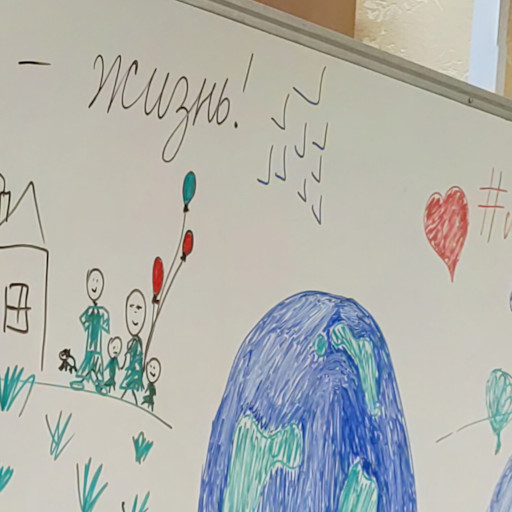 – жизнь!
#